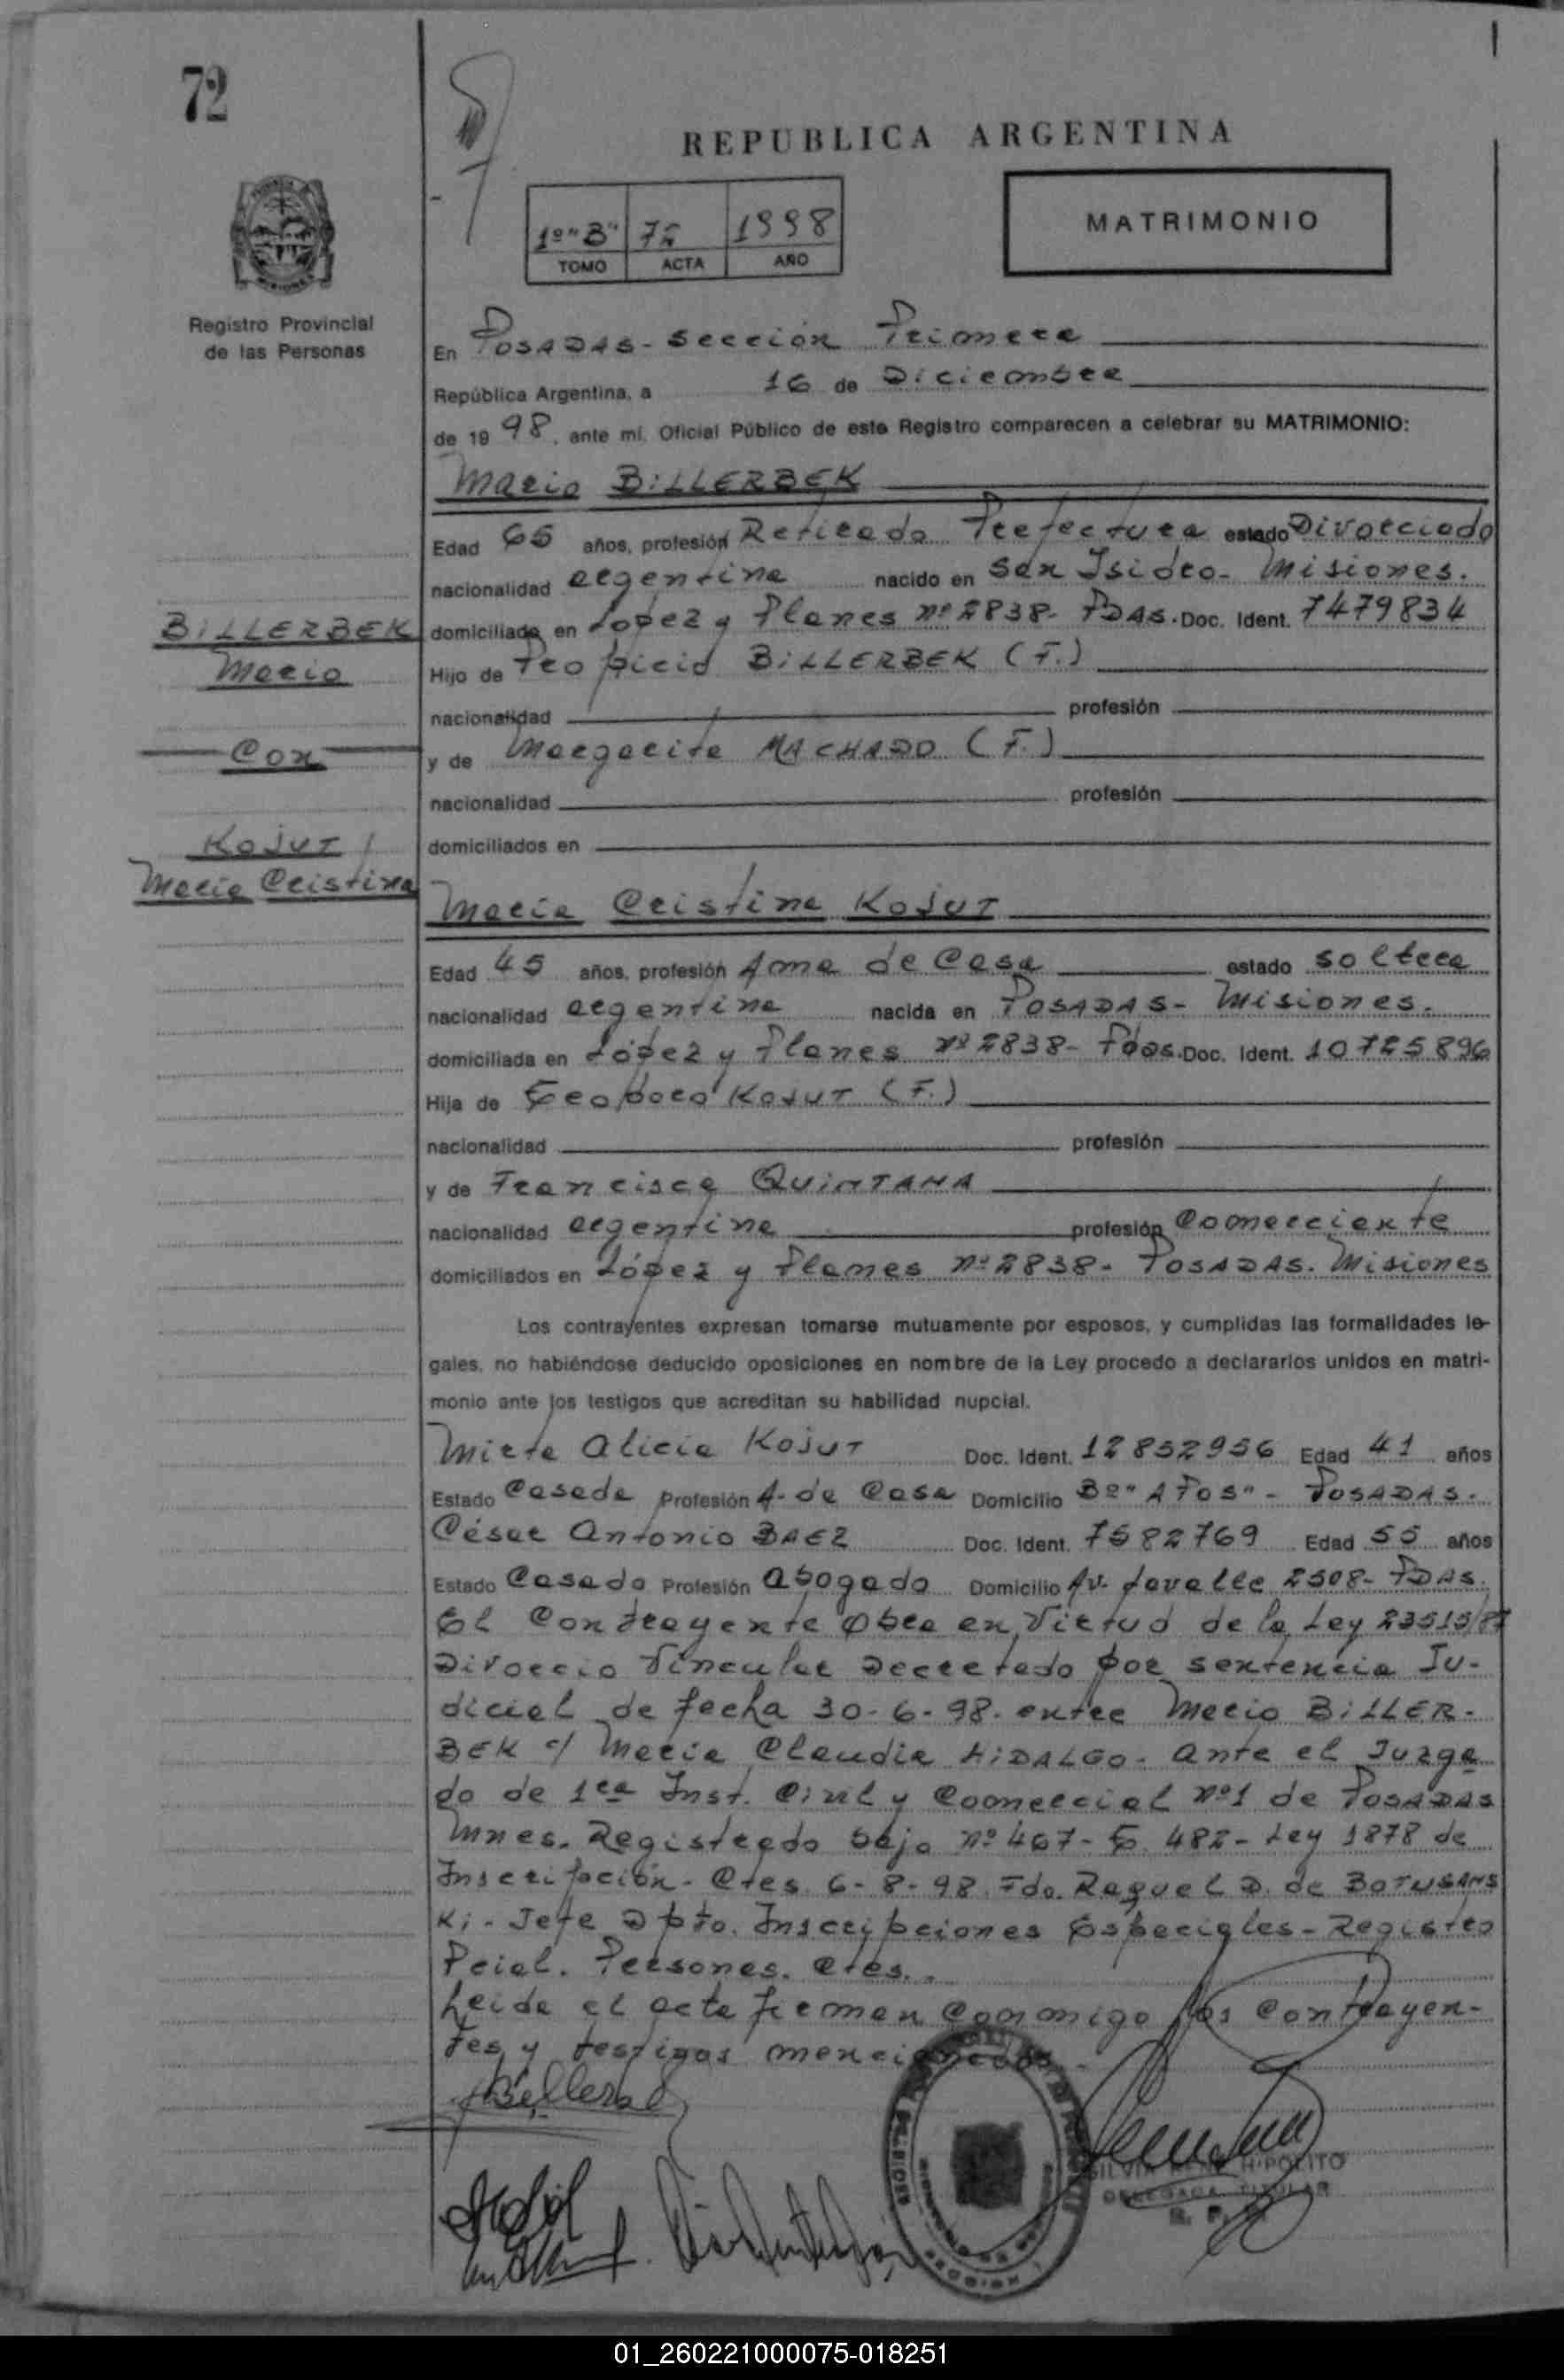 72
REPUBLICA ARGENTINA
1º "B" 72 1998
TOMO ACTA AÑO
MATRIMONIO
Registro Provincial
de las Personas
En POSADAS - Sección Primera
República Argentina, a 16 de Diciembre
de 1998, ante mí, Oficial Público de este Registro comparecen a celebrar su MATRIMONIO:
Mario BILLERBEK
Edad 65 años, profesión Retirado Prefectura estado Divorciado
nacionalidad argentina nacido en San Isidro - Misiones.
BILLERBEK
Mario
Con
KOJUT
María Cristina
domiciliado en López y Planes nº 2838 - PDAS. Doc. Ident. 7479834
Hijo de BILLERBEK (F.)
nacionalidad profesión
y de Margarita MACHADO (F.)
nacionalidad profesión
domiciliados en
María Cristina KOJUT
Edad 45 años, profesión Ama de Casa estado soltera
nacionalidad argentina nacida en POSADAS - Misiones.
domiciliada en López y Planes nº 2838 - Pdas. Doc. Ident. 10725896
Hija de Teodoro KOJUT (F.)
nacionalidad profesión
y de Francisca QUINTANA
nacionalidad argentina profesión Comerciante
domiciliados en López y Planes nº 2838 - POSADAS. Misiones
Los contrayentes expresan tomarse mutuamente por esposos, y cumplidas las formalidades le-
gales, no habiéndose deducido oposiciones en nombre de la Ley procedo a declararlos unidos en matri-
monio ante los testigos que acreditan su habilidad nupcial.
Mirta Alicia KOJUT Doc. Ident. 12852956 Edad 41 años
Estado Casada Profesión A. de Casa Domicilio Bº "A POS" - POSADAS.
César Antonio BAEZ Doc. Ident. 7582769 Edad 55 años
Estado Casado Profesión Abogado Domicilio Av. Lavalle 2508 - PDAS.
El Contrayente Obra en Virtud de la Ley 23515/87
Divorcio Vincular Decretado por sentencia Ju-
dicial de fecha 30-6-98. entre Mario BILLER-
BEK c/ María Claudia HIDALGO - Ante el Juzga
do de 1ra Inst. Civil y Comercial nº1 de POSADAS
Mnes. Registrado bajo nº 467 - 482 - Ley 1878 de
Inscripción - Ctes. 6-8-98. Fdo. Raquel D. de BOTUSANS
KI - Jefe Dpto. Inscripciones Especiales - Registro
Pcial. Personas. Ctes.
Leída el acta firman conmigo los contrayen-
tes y testigos mencionados.
SILVIA RENE HIPOLITO
DELEGADA TITULAR
01_260221000075-018251